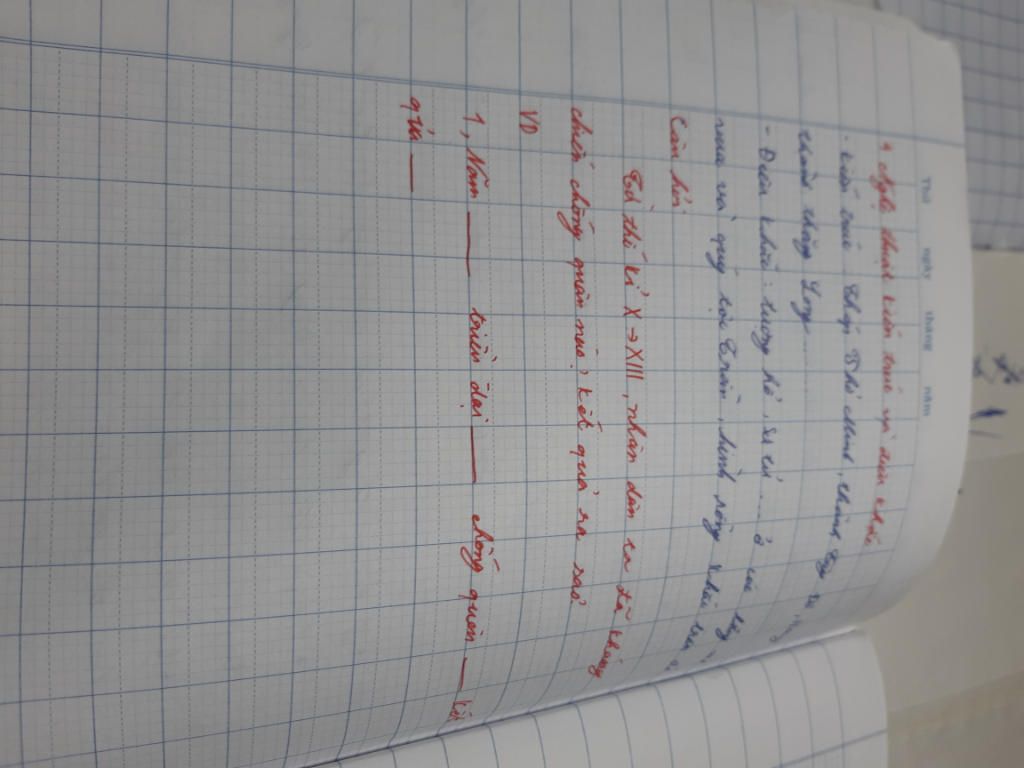 Thứ ngày tháng năm
4 Nghệ thuật kiến trúc và điêu khắc
- Kiến trúc: tháp Phổ Minh, thành Tây
thành Thăng Long ........
- Điêu khắc: tượng hổ, sư tử ..... ở các lăng
vua và quý tộc Trần, hình rồng khắc trên
Câu hỏi
Từ thế kỉ X → XIII, nhân dân ta đã kháng
chiến chống quân nào, kết quả ra sao?
VD
1, Năm ___ triều đại ___ chống quân ___ kết
quả ___